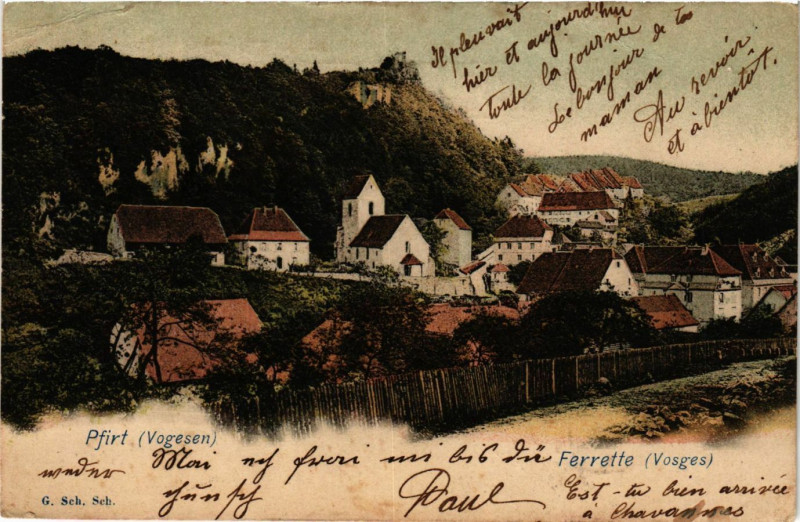 Il pleuvait
hier et aujourd'hui
toute la journée
Le bonjour de ta
maman
Au revoir
et à bientôt.
Pfirt (Vogesen)
Ferrette (Vosges)
weder Mai ech frai mi bis dü
chunsch
Paul
Est-tu bien arrivée
à Chavannes
G. Sch. Sch.